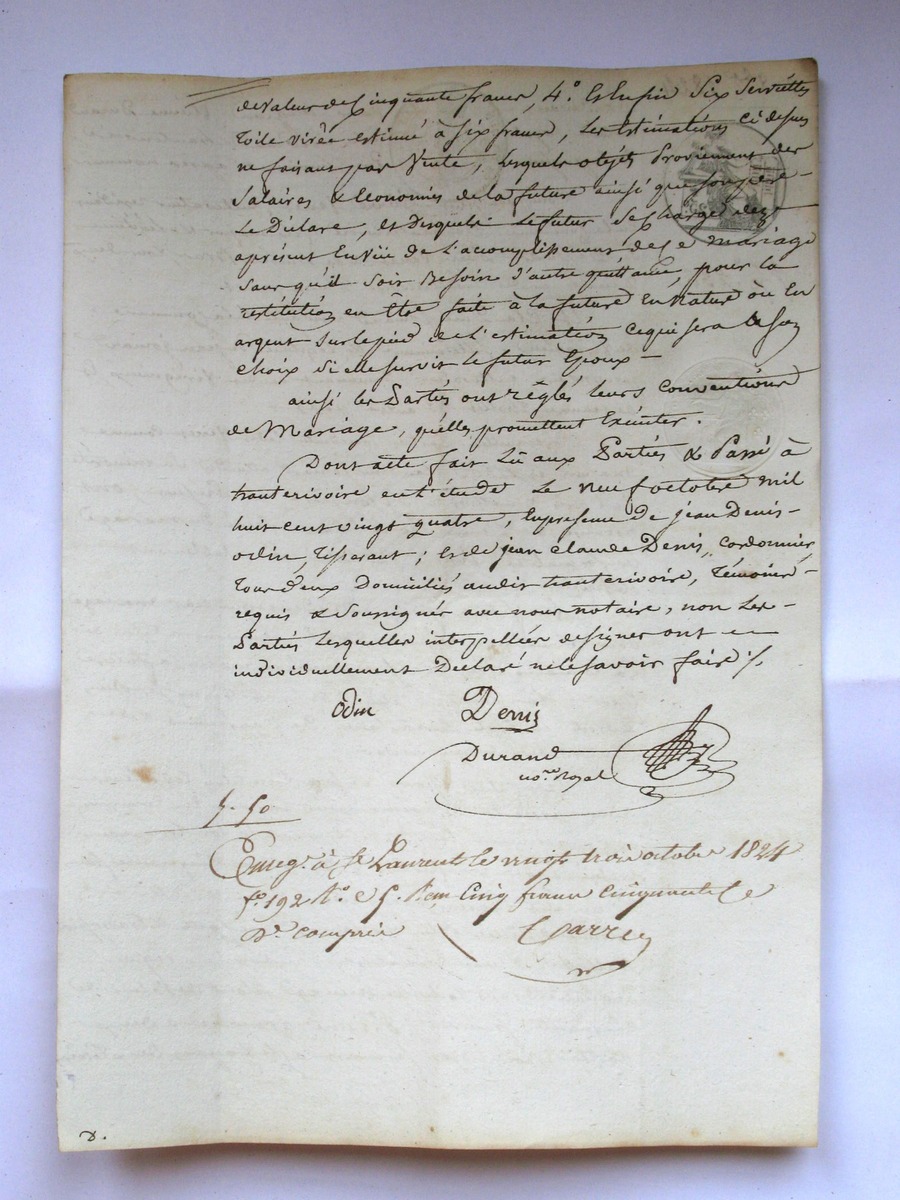 de valeur de Cinquante francs, 4.° Et Enfin Six Serviettes
toile virée estimée à six francs, Les Estimations Ci dessus
ne faisant pas Vente, Lesquels objets Proviennent des
Salaires & Economies de la future ainsi que son père
Le Déclare, et Desquels Le futur Se Charge dez
aprésent En Vüe de L'accomplissement de Ce mariage
Sans qu'il soit Besoin d'autre quittance, pour la
restitution en Être faite à la future En Nature ou En
argent Sur le pied de L'estimation Ce qui sera à Son
Choix Si elle survit Le futur Epoux —
ainsi les Partiés ont réglés leurs Conventions
de Mariage, qu'elles promettent Exécuter.
Dont acte fait Lû aux Partiés & Passé à
hauterivoire en L'étude Le neuf octobre mil
huit Cent vingt quatre, En presence De jean Denis
odin, Tisserant; Et de jean claude Denis, Cordonnier,
Tous Deux Domiciliés audit hauterivoire, Témoins
requis & Soussignés avec nous notaire, non Les
Partiés Lesquelles interpellées de signer ont
individuellement Déclaré ne le savoir faire ./.
Odin Denis
Durand
no.re Royal
5. 50
Enreg.é à St Laurent le vingt trois octobre 1824
f.o 192 R.o C 5. Reçu Cinq francs Cinquante C
D.e compris